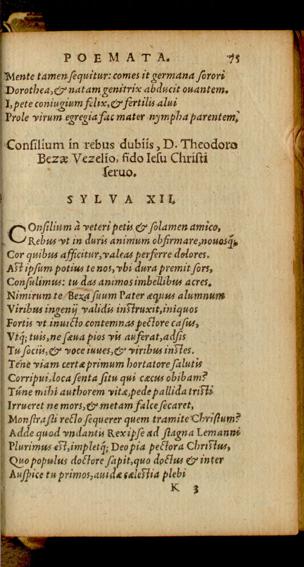 POEMATA. 75
Mente tamen sequitur: comes it germana sorori
Dorothea, & natam genitrix abducit ouantem.
I, pete coniugium felix, & fertilis alui
Prole virum egregia fac mater nympha parentem.
Consilium in rebus dubiis, D. Theodoro
Bezæ Vezelio, fido Iesu Christi
seruo.
SYLVA XII.
COnsilium à veteri petis & solamen amico,
Rebus vt in duris animum obfirmare, nouosq́;
Cor quibus afficitur, valeas perferre dolores.
Ast ipsum potius te nos, vbi dura premit sors,
Consulimus: tu das animos imbellibus acres.
Nimirum te Beza suum Pater æquus alumnum
Viribus ingenij validis instruxit, iniquos
Fortis vt inuicto contemnas pectore casus,
Vtq́; tuis, ne sæua pios vis auferat, adsis
Tu sociis, & voce iuues, & viribus instes.
Tene viam certæ primum hortatore salutis
Corripui, loca senta situ qui cæcus obibam?
Túne mihi authorem vitæ, pede pallida tristi
Irrueret ne mors, & metam falce secaret,
Monstrasti recto sequerer quem tramite Christum?
Adde quod vndantis Rex ipse ad stagna Lemanni
Plurimus est, impletq́; Deo pia pectora Christus,
Quo populus doctore sapit, quo doctus & inter
Auspice tu primos, auidæ cælestia plebi
K 3